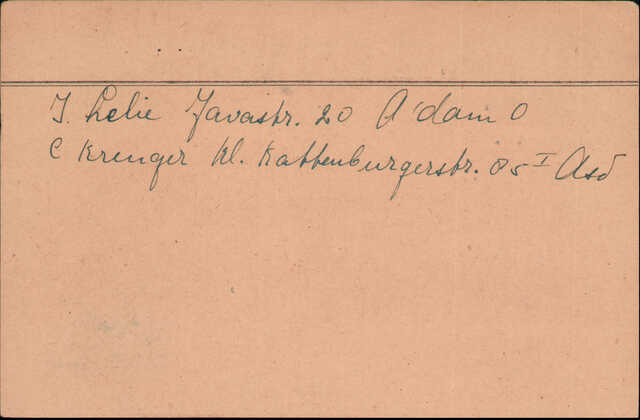 J. Lelie Javastr. 20 A'dam O
C Krenger Kl. Kattenburgerstr. 85 I Asd